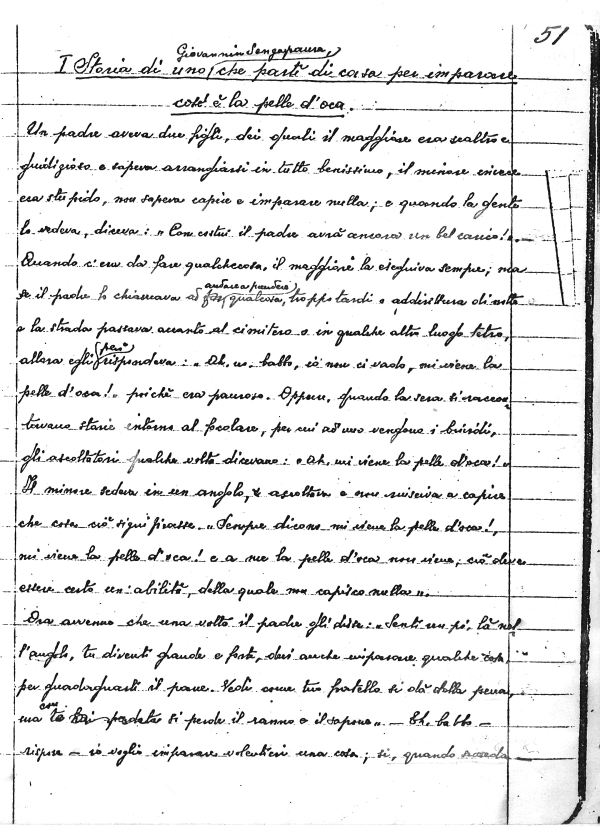 51
Giovannin Senzapaura,
I Storia di uno che partì di casa per imparare
cos'è la pelle d'oca.
Un padre aveva due figli, dei quali il maggiore era scaltro e
giudizioso e sapeva arrangiarsi in tutto benissimo, il minore invece
era stupido, non sapeva capire e imparare nulla; e quando la gente
lo vedeva, diceva: "Con costui il padre avrà ancora un bel carico!".
Quando c'era da fare qualchecosa, il maggiore la eseguiva sempre; ma
andare a prendere
se il padre lo chiamava a qualcosa, troppo tardi o addirittura di notte
e la strada passava accanto al cimitero o in qualche altro luogo tetro,
però
allora egli rispondeva: "Ah, no, babbo, io non ci vado, mi viene la
pelle d'oca!" poichè era pauroso. Oppure, quando la sera si raccon-
tavano storie intorno al focolare, per cui ad uno vengono i brividi,
gli ascoltatori qualche volta dicevano: "Ah, mi viene la pelle d'oca!"
Il minore sedeva in un angolo, ascoltava e non riusciva a capire
che cosa ciò significasse. "Sempre dicono mi viene la pelle d'oca!,
mi viene la pelle d'oca! e a me la pelle d'oca non viene; ciò deve
essere certo un'abilità, della quale non capisco nulla".
Ora avvenne che una volta il padre gli disse: "Senti un pò, là nel
l'angolo, tu diventi grande e forte, devi anche imparare qualche cosa,
per guadagnarti il pane. Vedi come tuo fratello si dà della pena,
con
ma te si perde il ranno e il sapone". — Eh, babbo —
rispose — io voglio imparare volentieri una cosa; si, quando